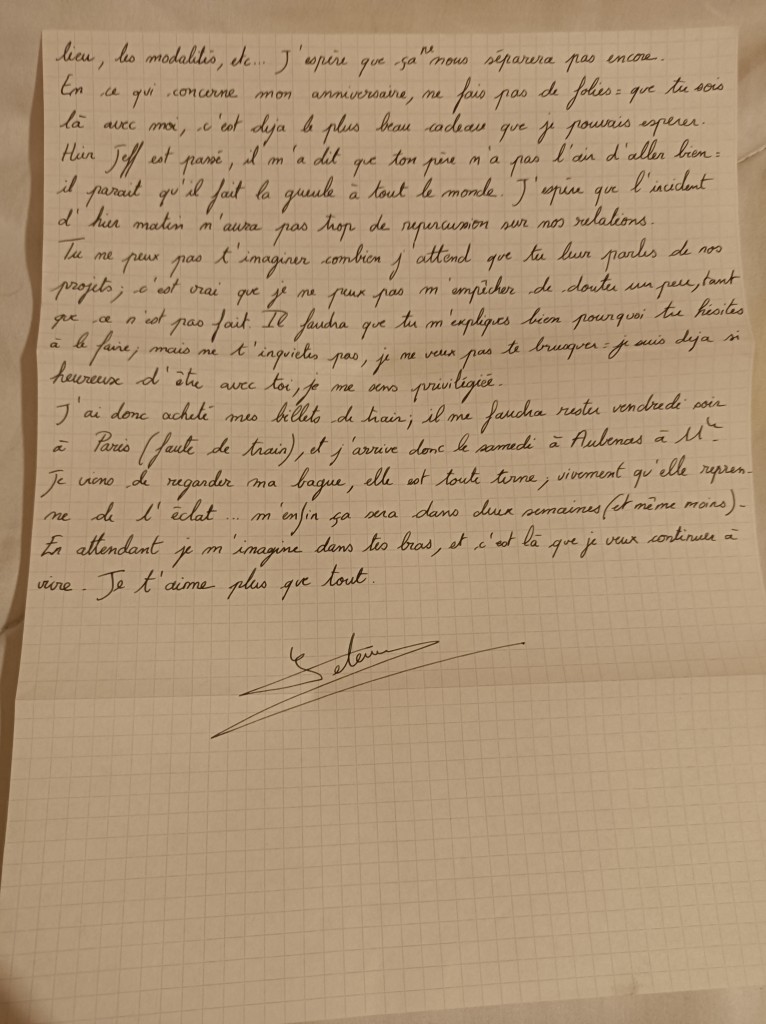 lieu, les modalités, etc... J'espère que ça ne nous séparera pas encore.
En ce qui concerne mon anniversaire, ne fais pas de folies = que tu sois
là avec moi, c'est deja le plus beau cadeau que je pouvais espérer.
Hier Jeff est passé, il m'a dit que ton père n'a pas l'air d'aller bien =
il parait qu'il fait la gueule à tout le monde. J'espère que l'incident
d'hier matin n'aura pas trop de repercussion sur nos relations.
Tu ne peux pas t'imaginer combien j'attend que tu leur parles de nos
projets ; c'est vrai que je ne peux pas m'empêcher de douter un peu, tant
que ce n'est pas fait. Il faudra que tu m'expliques bien pourquoi tu hésites
à le faire ; mais ne t'inquietes pas, je ne veux pas te brusquer = je suis deja si
heureux d'être avec toi, je me sens privilégiée.
J'ai donc acheté mes billets de train ; il me faudra rester vendredi soir
à Paris (faute de train), et j'arrive donc le samedi à Aubenas à
Je viens de regarder ma bague, elle est toute terne ; vivement qu'elle repren-
ne de l'éclat... m'enfin ça sera dans deux semaines (et même moins).
En attendant je m'imagine dans tes bras, et c'est là que je veux continuer à
vivre. Je t'aime plus que tout.